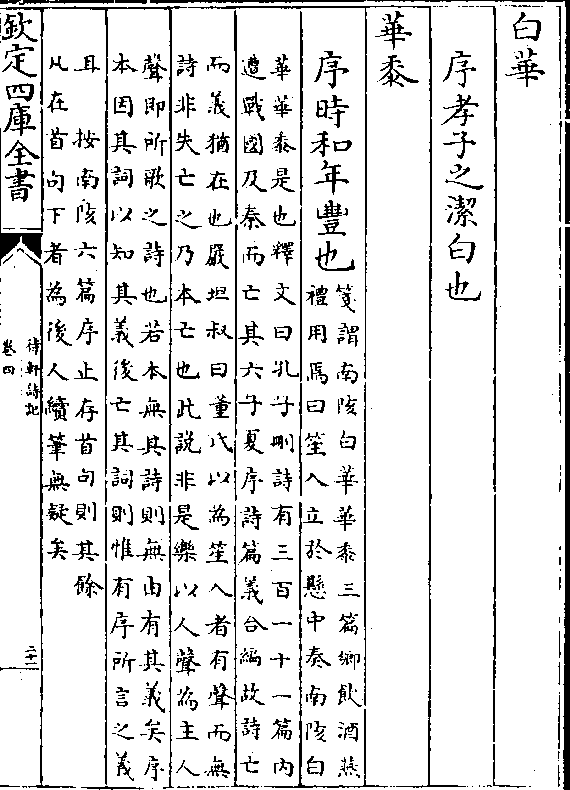 白華
序孝子之潔白也
華黍
序時和年豐也
箋謂南陔白華華黍三篇鄉飲酒燕
禮用焉曰笙入立於懸中奏南陔白
華華黍是也釋文曰孔子刪詩有三百一十一篇內
遭戰國及秦而亡其六子夏序詩篇義合編故詩亡
而義猶在也嚴坦叔曰董氏以為笙入者有聲而無
詩非失亡之乃本亡也此說非是樂以人聲為主人
聲即所歌之詩也若本無其詩則無由有其義矣序
本因其詞以知其義後亡其詞則惟有序所言之義
耳　按南陔六篇序止存首句則其餘
凡在首句下者為後人續筆無疑矣
欽定四庫全書
待軒詩記
卷四
二十一